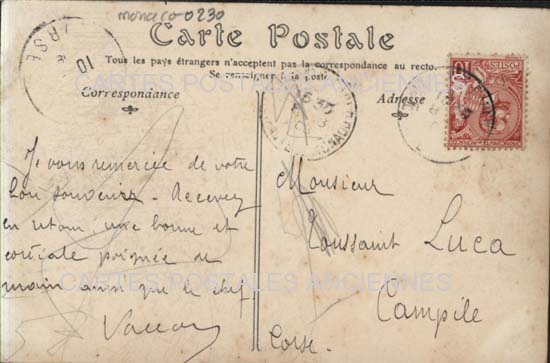 monaco 0230
Carte Postale
Tous les pays étrangers n'acceptent pas la correspondance au recto.
Se renseigner à la poste
CARTES POSTALES ANCIENNES
Correspondance
Adresse
Je vous remercie de votre
bon souvenir. Recevez
en retour une bonne et
cordiale poignée de
main ainsi que le chef.
Monsieur
Toussaint Luca
CARTES POSTALES ANCIENNES
Campile
Corse.